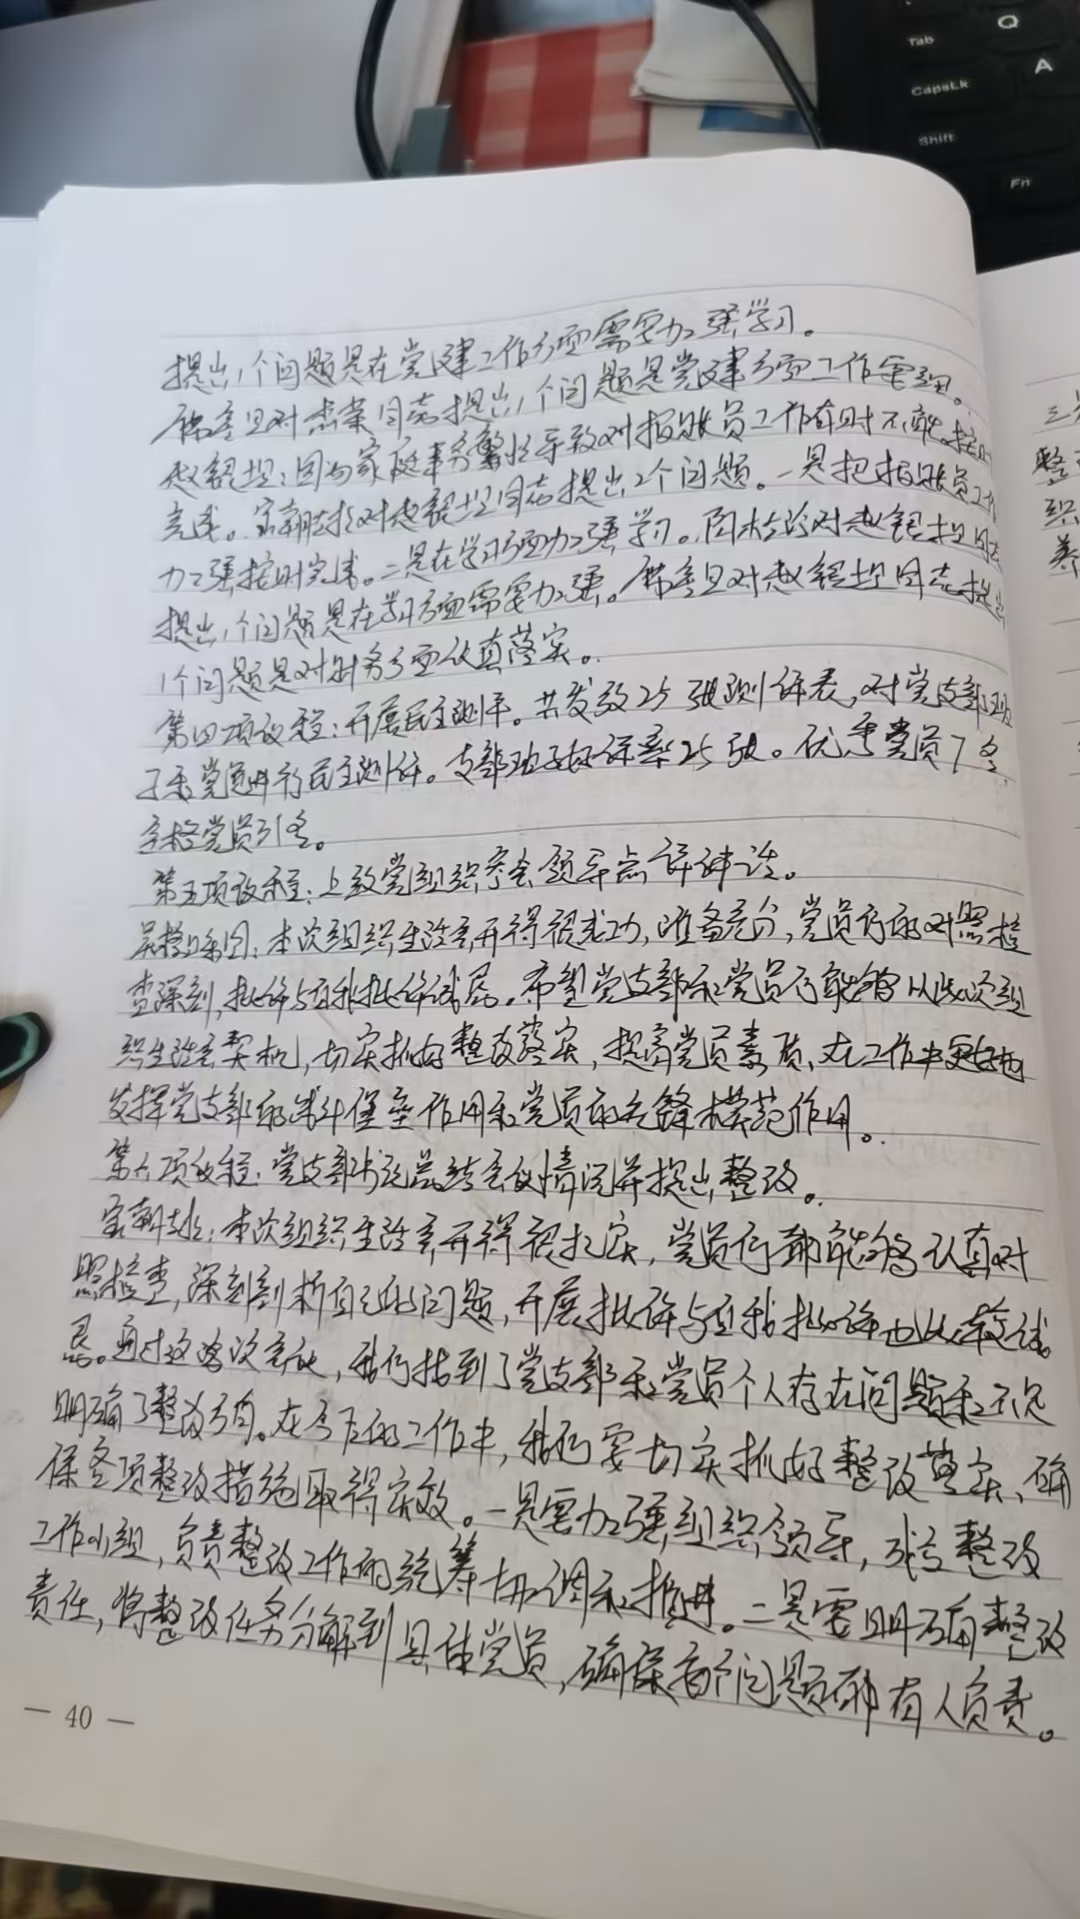 Tab
Q
CapsLk
A
Shift
Fn
提出1个问题是在党建工作方面需要加强学习。
对 荣同志提出1个问题是党建方面工作
因为家庭事务繁忙导致对报账员工作有时不能按时
完成。 对赵 同志提出2个问题。一是把报账员工作
加强按时完成。二是在学习方面加强学习。 对赵 同志
提出1个问题是在学习方面需要加强。 对赵 同志提出
1个问题是对财务方面认真落实。
第四项议程:开展民主测评。共发放25张测评表,对党支部班
子和党员进行民主测评。支部班子好评票25张。优秀党员7名
合格党员 名。
第五项议程:上级党组织 领导点评讲话。
本次组织生活会开得很成功,准备充分,党员们的对照检
查深刻,批评与自我批评诚恳。希望党支部和党员们能够以此次组
织生活会契机,切实抓好整改落实,提高党员素质,在工作中更好的
发挥党支部的战斗堡垒作用和党员的先锋模范作用。
第六项议程:党支部书记总结会议情况并提出整改。
本次组织生活会开得很扎实,党员们都能够认真对
照检查,深刻剖析自己的问题,开展批评与自我批评也比较诚
恳。通过这次会议,我们找到了党支部和党员个人存在问题和不足
明确了整改方向。在今后的工作中,我们要切实抓好整改落实,确
保各项整改措施取得实效。一是要加强组织领导,成立整改
工作小组,负责整改工作的统筹协调和推进。二是要明确整改
责任,将整改任务分解到具体党员,确保每个问题都有人负责。
— 40 —
三是
整
织